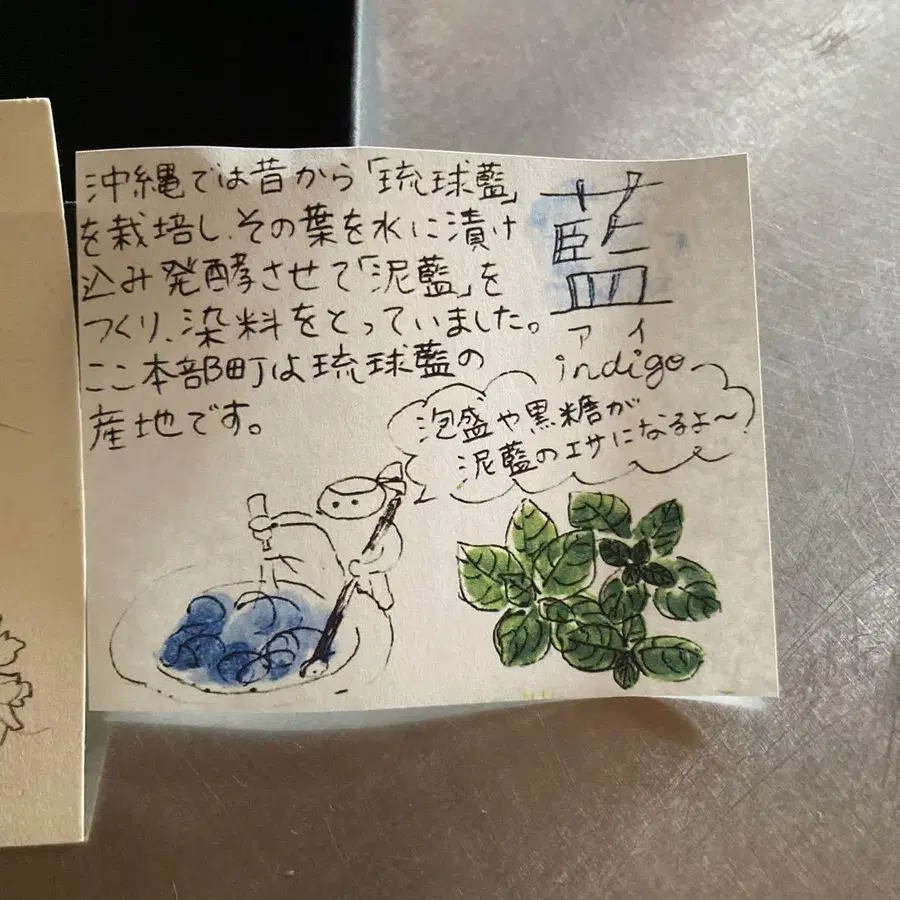 沖縄では昔から「琉球藍」
を栽培し、その葉を水に漬け
込み発酵させて「泥藍」を
つくり、染料をとっていました。
ここ本部町は琉球藍の
産地です。
藍
アイ
indigo
泡盛や黒糖が
泥藍のエサになるよ〜